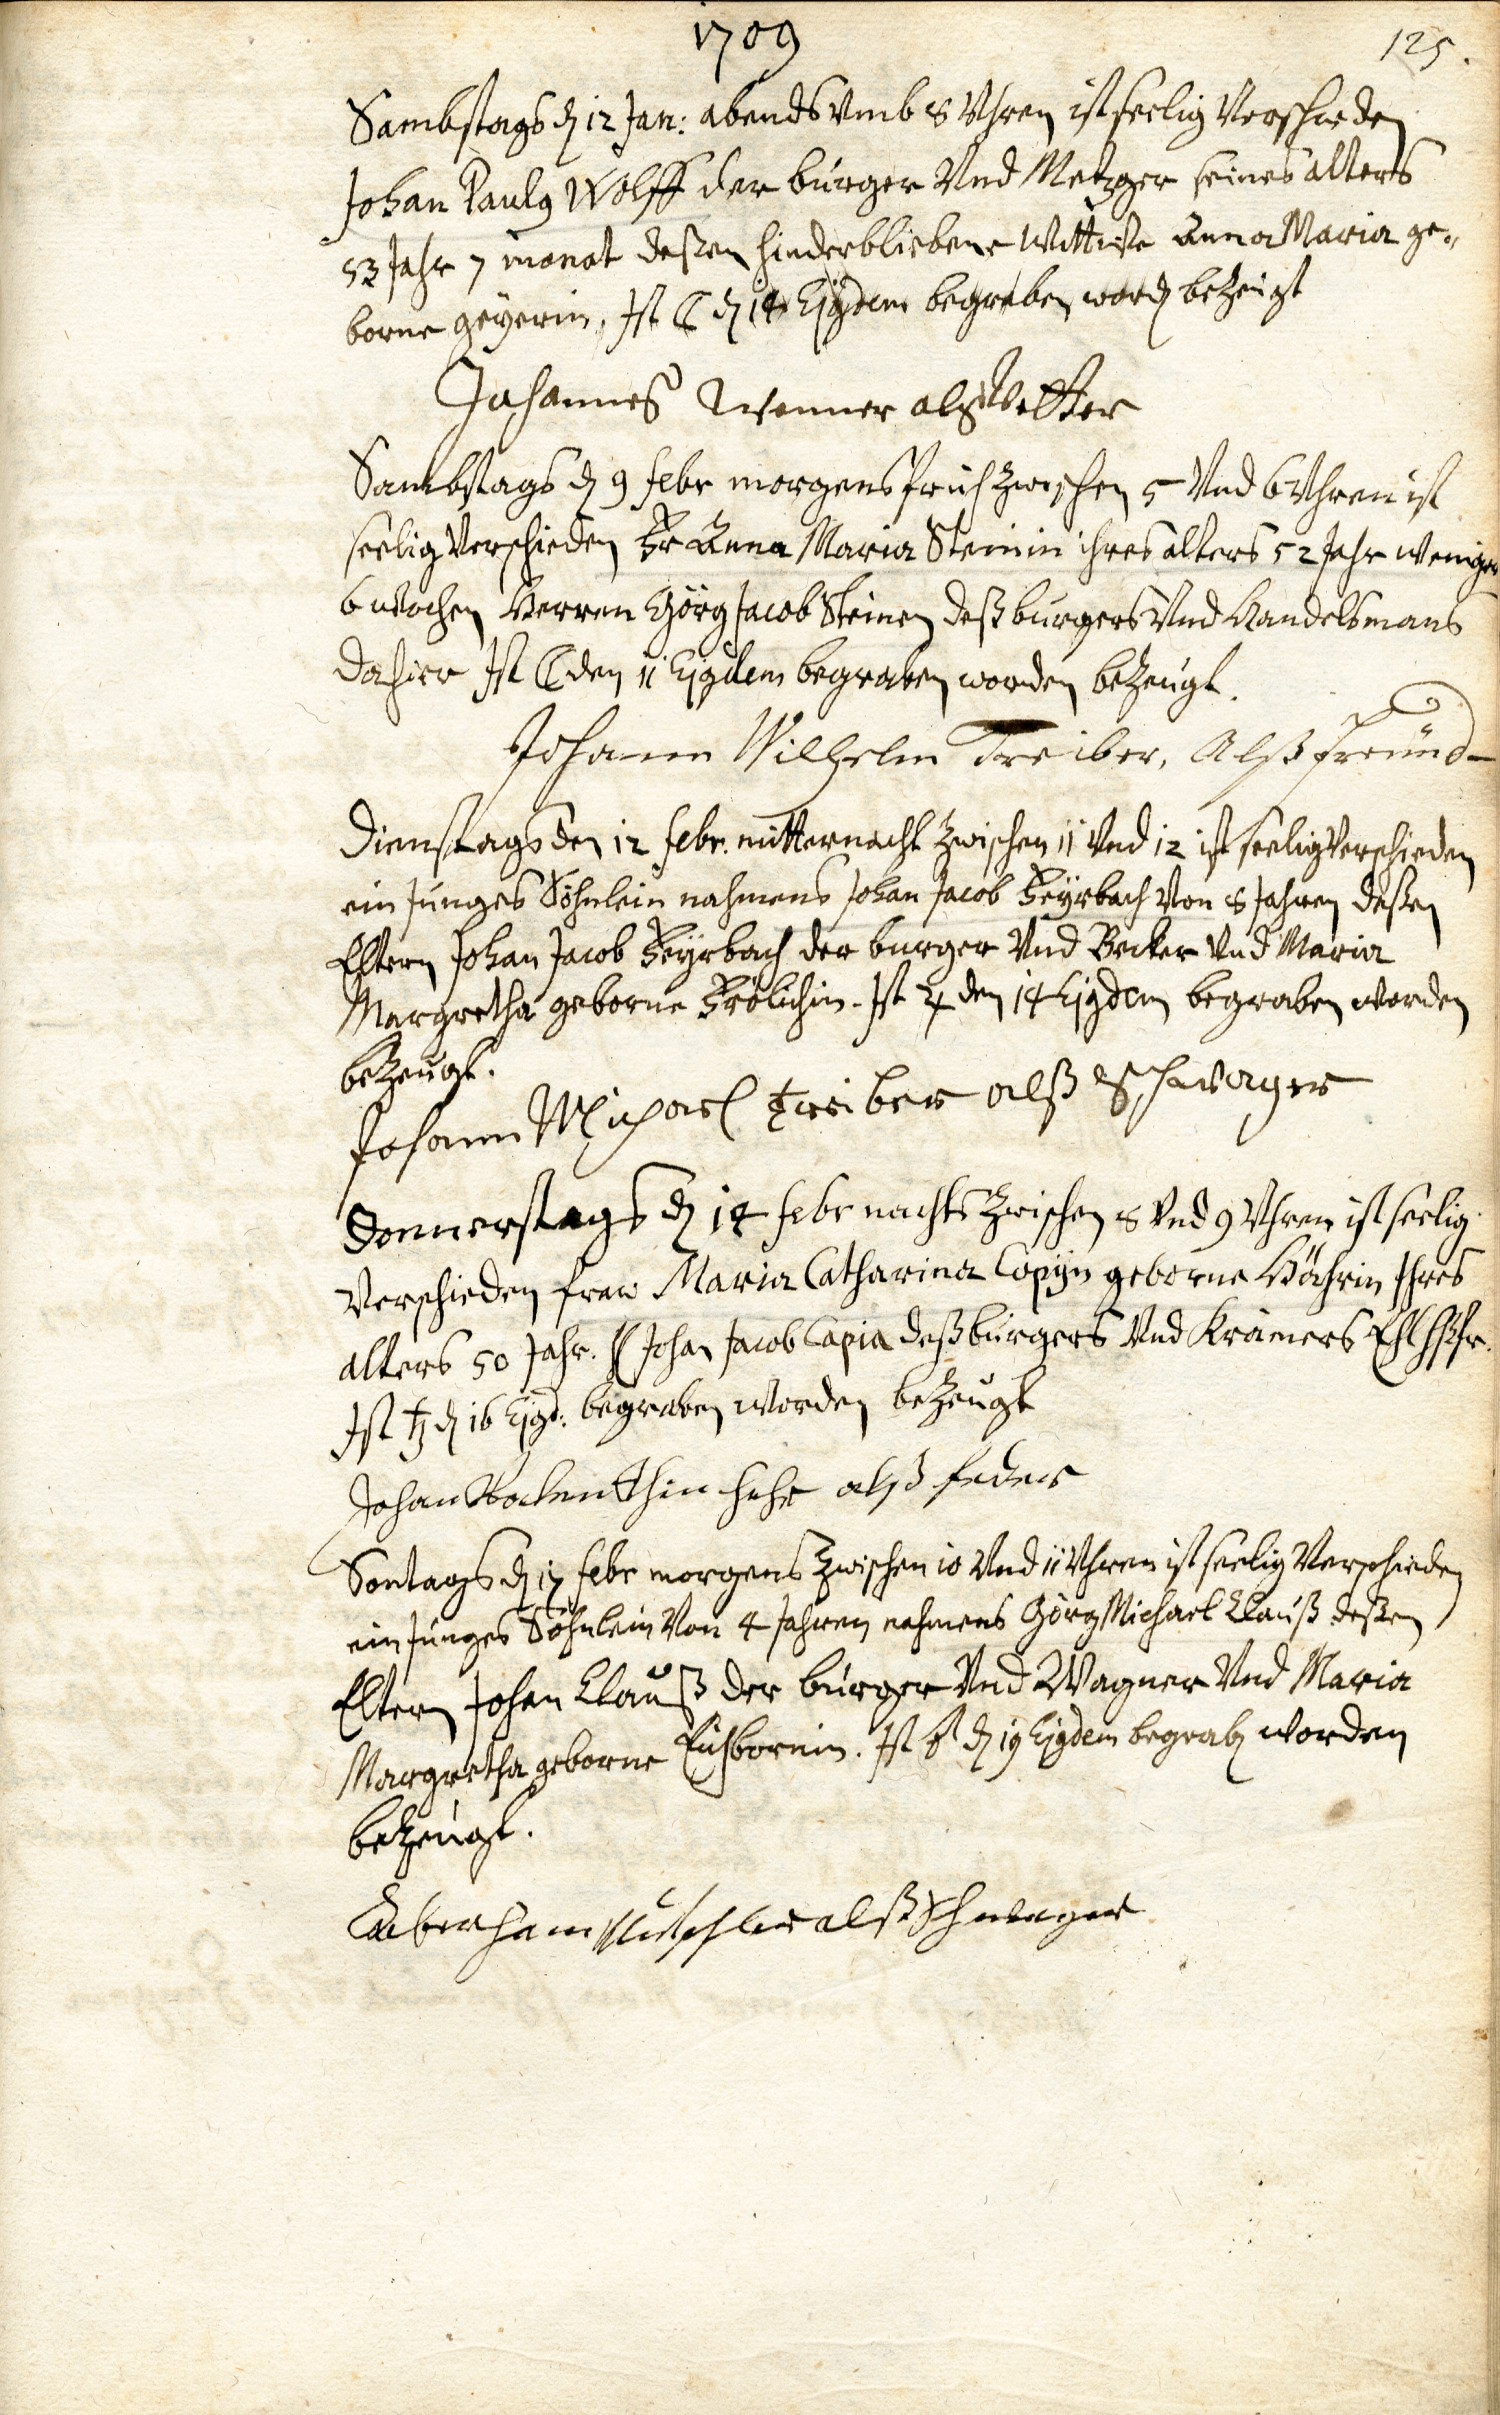 1709
125.
Sambstags dn 12 Jan: abends vmb 8 Vhren ist seelig Verschieden
Johan Paulg Wolff der bürger Vnd Metzger seines alters
53 Jahr 7 monat deßen hinderbliebene Wittwe Anna Maria ge-
borne geyerin, Ist ☾ dn 14 Ejgdem begraben word bezeügt
Johannes Wenner alß Vetter
Sambstags dn 9 febr morgens früh zwischen 5 Vnd 6 Vhren ist
seelig Verschieden Fr Anna Maria Steinin ihres alters 52 Jahr weniger
6 wochen Herren Görg Jacob Steinen deß bürgers Vnd Handelsmans
dahier Ist ☾ den 11 Ejgdem begraben worden bezeügt.
Johann Wilhelm Treiber, Alß freünd
Dienstags den 12 febr. mitternacht zwischen 11 Vnd 12 ist seelig verschieden
ein Junges Söhnlein nahmens Johan Jacob Feyrbach Von 8 Jahren deßen
Eltern Johan Jacob Feyrbach der burger Vnd Becker Vnd Maria
Margretha geborne Frölichin. Ist ♃ den 14 Ejgdem begraben worden
bezeügt.
Johann Michael Treiber alß Schwager
Donnerstags dn 14 febr nachts zwischen 8 Vnd 9 Vhren ist seelig
Verschieden fraw Maria Catharina Copijn geborne Höhrin Ihres
alters 50 Jahr. Johan Jacob Capia deß bürgers Vnd Krämers
Ist ♄ dn 16 Ejgd: begraben worden bezeügt
Johan Valenthin alß
Sontags dn 17 febr morgens zwischen 10 Vnd 11 Vhren ist seelig Verschieden
ein Junges Söhnlein Von 4 Jahren nahmens Görg Michael Clauß deßen
Eltern Johan Clauß der bürger Vnd Wagner Vnd Maria
Margretha geborne Ist ♂ dn 19 Ejgdem begrab worden
bezeügt.
alß Schwager